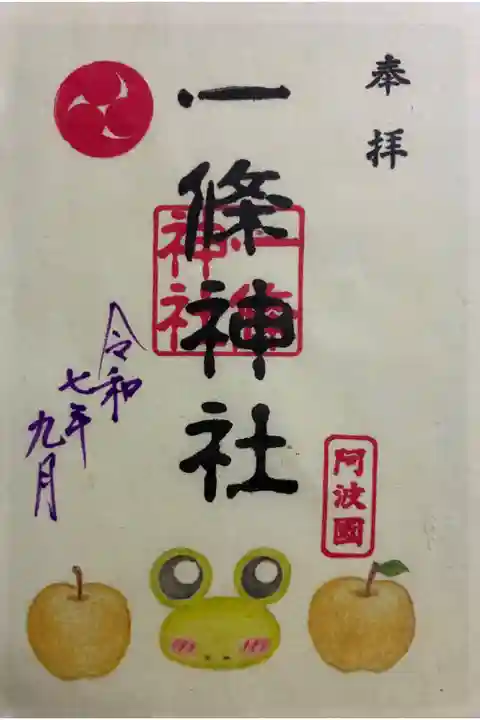 奉拝
一條神社
一條
神社
阿波國
令和
七年
九月